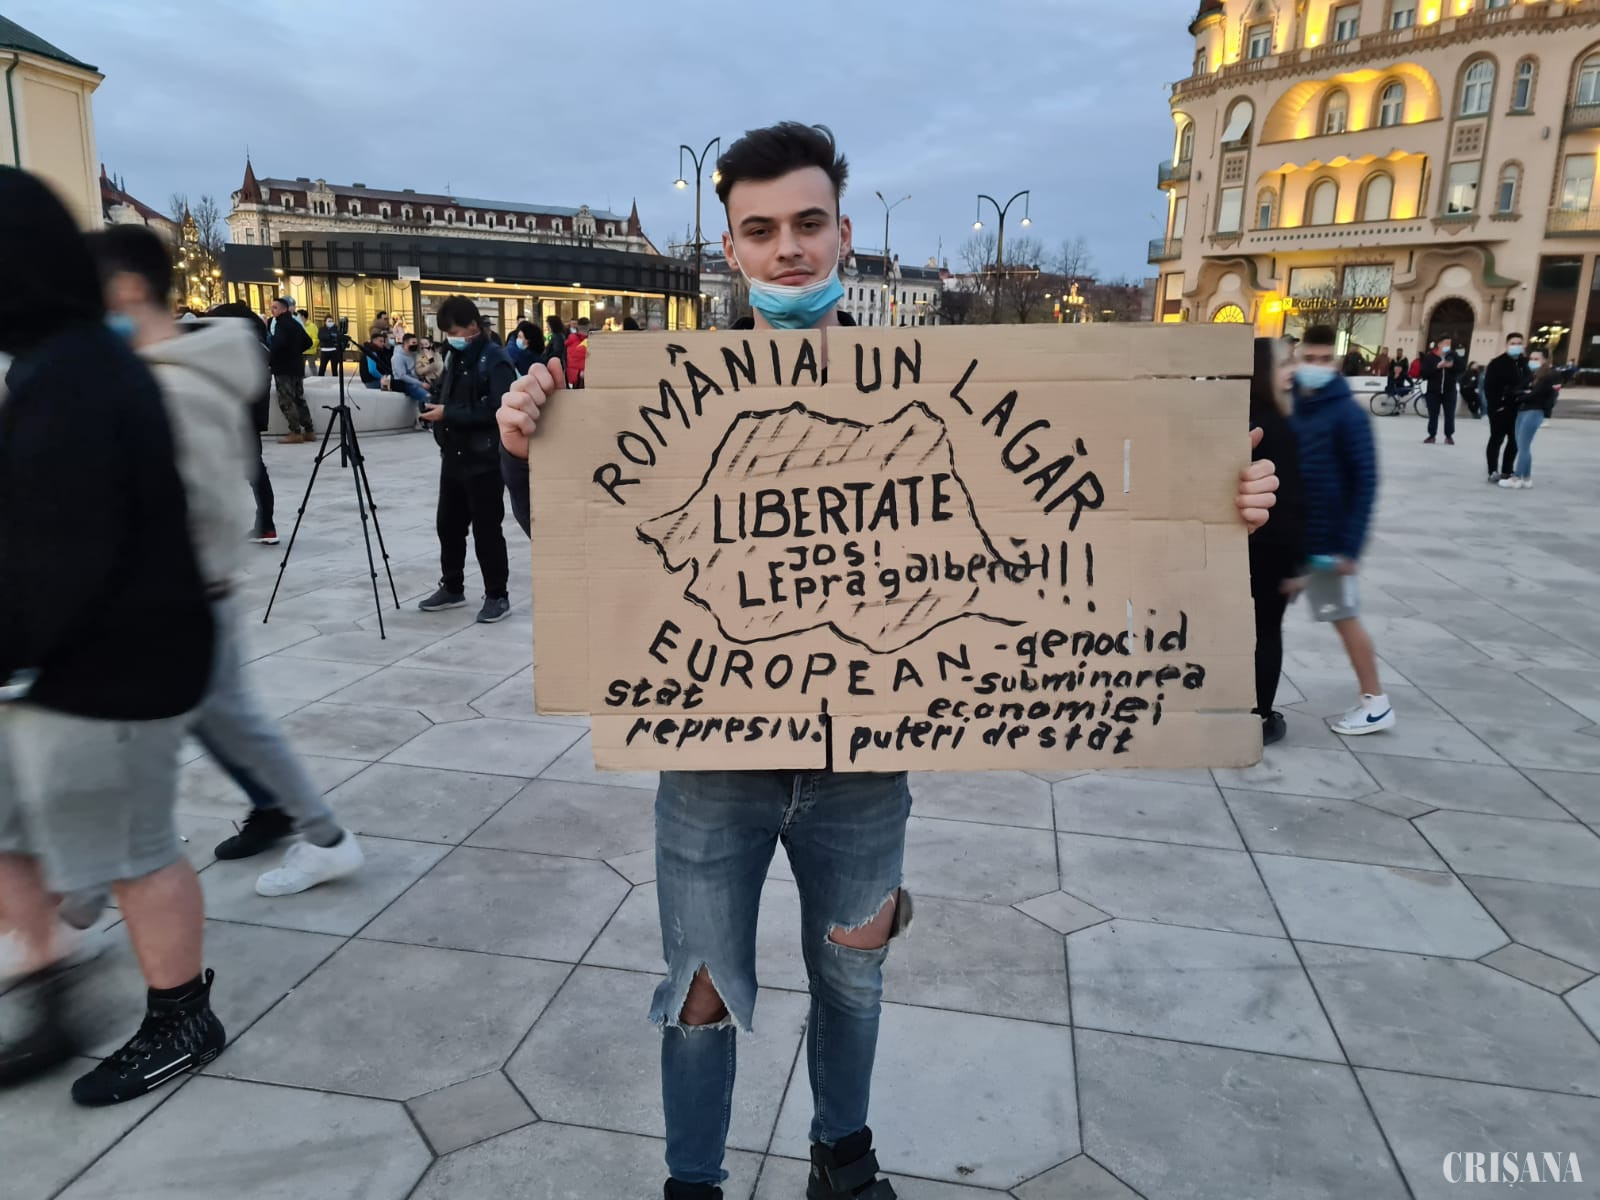 ROMÂNIA UN LAGĂR
LIBERTATE
JOS!
LEpra galbenă!!!
EUROPEAN
-genocid
-subminarea
economiei
puteri de stat
stat
represiv!
Raiffeisen BANK
CRIȘANA